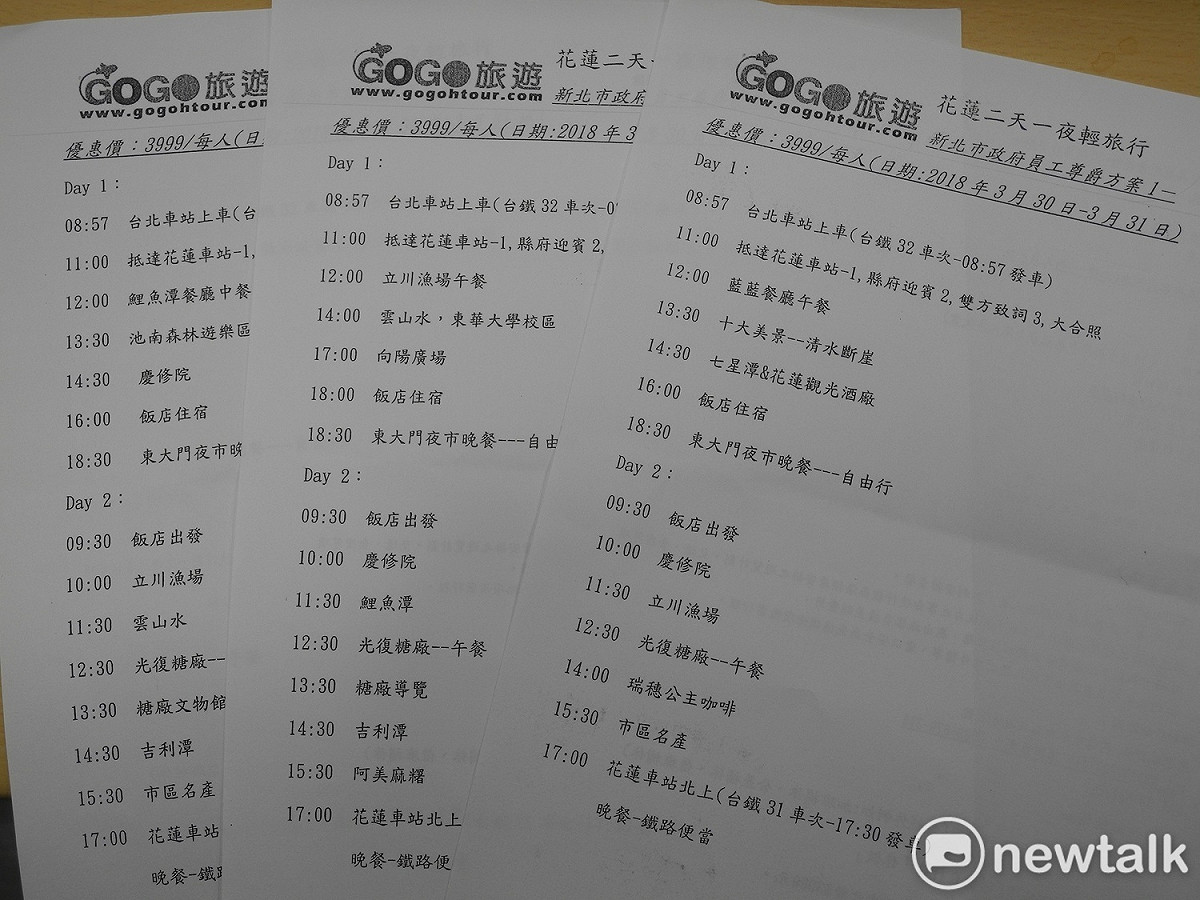 GOGO旅遊
www.gogohtour.com
優惠價：3999/每人(日
Day 1：
08:57 台北車站上車(台
11:00 抵達花蓮車站-1,
12:00 鯉魚潭餐廳中餐
13:30 池南森林遊樂區
14:30 慶修院
16:00 飯店住宿
18:30 東大門夜市晚
Day 2：
09:30 飯店出發
10:00 立川漁場
11:30 雲山水
12:30 光復糖廠--
13:30 糖廠文物館
14:30 吉利潭
15:30 市區名產
17:00 花蓮車站
晚餐-鐵
GOGO旅遊
www.gogohtour.com
花蓮二天
新北市政府
優惠價：3999/每人(日期:2018 年 3
Day 1：
08:57 台北車站上車(台鐵 32 車次-0
11:00 抵達花蓮車站-1,縣府迎賓 2,
12:00 立川漁場午餐
14:00 雲山水，東華大學校區
17:00 向陽廣場
18:00 飯店住宿
18:30 東大門夜市晚餐---自由
Day 2：
09:30 飯店出發
10:00 慶修院
11:30 鯉魚潭
12:30 光復糖廠--午餐
13:30 糖廠導覽
14:30 吉利潭
15:30 阿美麻糬
17:00 花蓮車站北上
晚餐-鐵路便
GOGO旅遊
www.gogohtour.com
花蓮二天一夜輕旅行
新北市政府員工尊爵方案 1—
優惠價：3999/每人(日期:2018 年 3 月 30 日-3 月 31 日)
Day 1：
08:57 台北車站上車(台鐵 32 車次-08:57 發車)
11:00 抵達花蓮車站-1,縣府迎賓 2,雙方致詞 3,大合照
12:00 藍藍餐廳午餐
13:30 十大美景--清水斷崖
14:30 七星潭&花蓮觀光酒廠
16:00 飯店住宿
18:30 東大門夜市晚餐---自由行
Day 2：
09:30 飯店出發
10:00 慶修院
11:30 立川漁場
12:30 光復糖廠--午餐
14:00 瑞穗公主咖啡
15:30 市區名產
17:00 花蓮車站北上(台鐵 31 車次-17:30 發車
晚餐-鐵路便當
newtalk